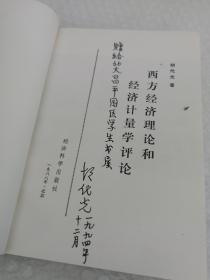 胡代光 著
西方经济理论和
经济计量学评论
经济科学出版社
一九八八年·北京
赠给北大四平园医学生书屋
胡代光
一九九四年
十二月